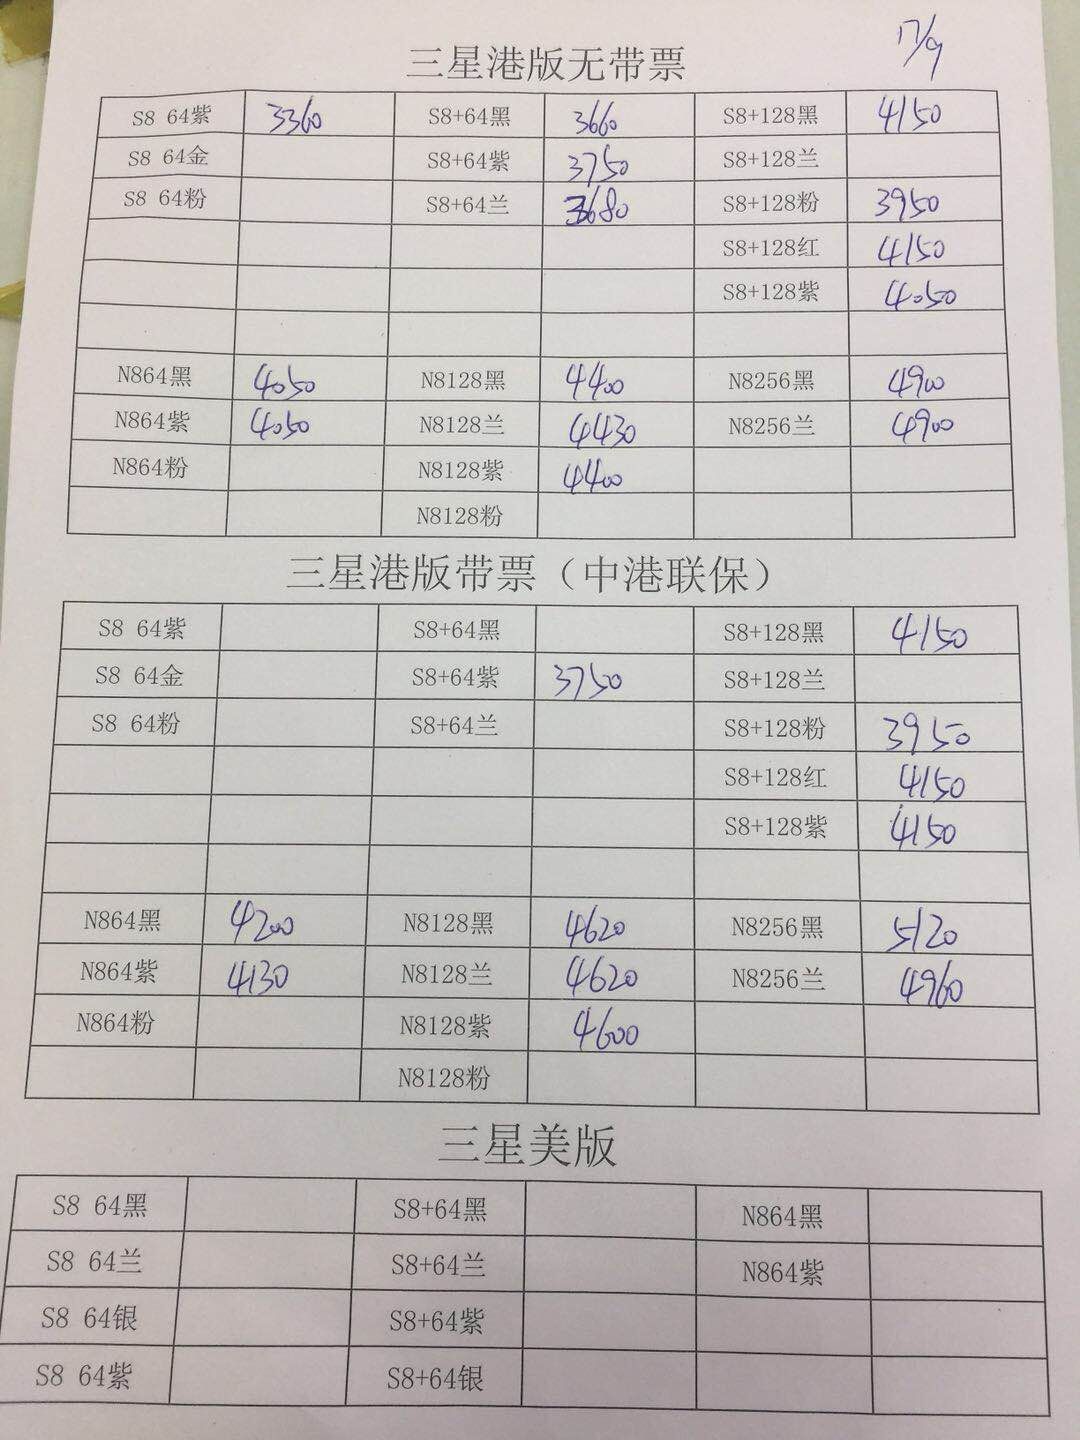 17/9
三星港版无带票
S8 64紫 3360 S8+64黑 3660 S8+128黑 4150
S8 64金 S8+64紫 3750 S8+128兰
S8 64粉 S8+64兰 3680 S8+128粉 3950
S8+128红 4150
S8+128紫 4050
N864黑 4050 N8128黑 4400 N8256黑 4900
N864紫 4050 N8128兰 4430 N8256兰 4900
N864粉 N8128紫 4400
N8128粉
三星港版带票（中港联保）
S8 64紫 S8+64黑 S8+128黑 4150
S8 64金 S8+64紫 3750 S8+128兰
S8 64粉 S8+64兰 S8+128粉 3950
S8+128红 4150
S8+128紫 4150
N864黑 4200 N8128黑 4620 N8256黑 5120
N864紫 4130 N8128兰 4620 N8256兰 4960
N864粉 N8128紫 4600
N8128粉
三星美版
S8 64黑 S8+64黑 N864黑
S8 64兰 S8+64兰 N864紫
S8 64银 S8+64紫
S8 64紫 S8+64银